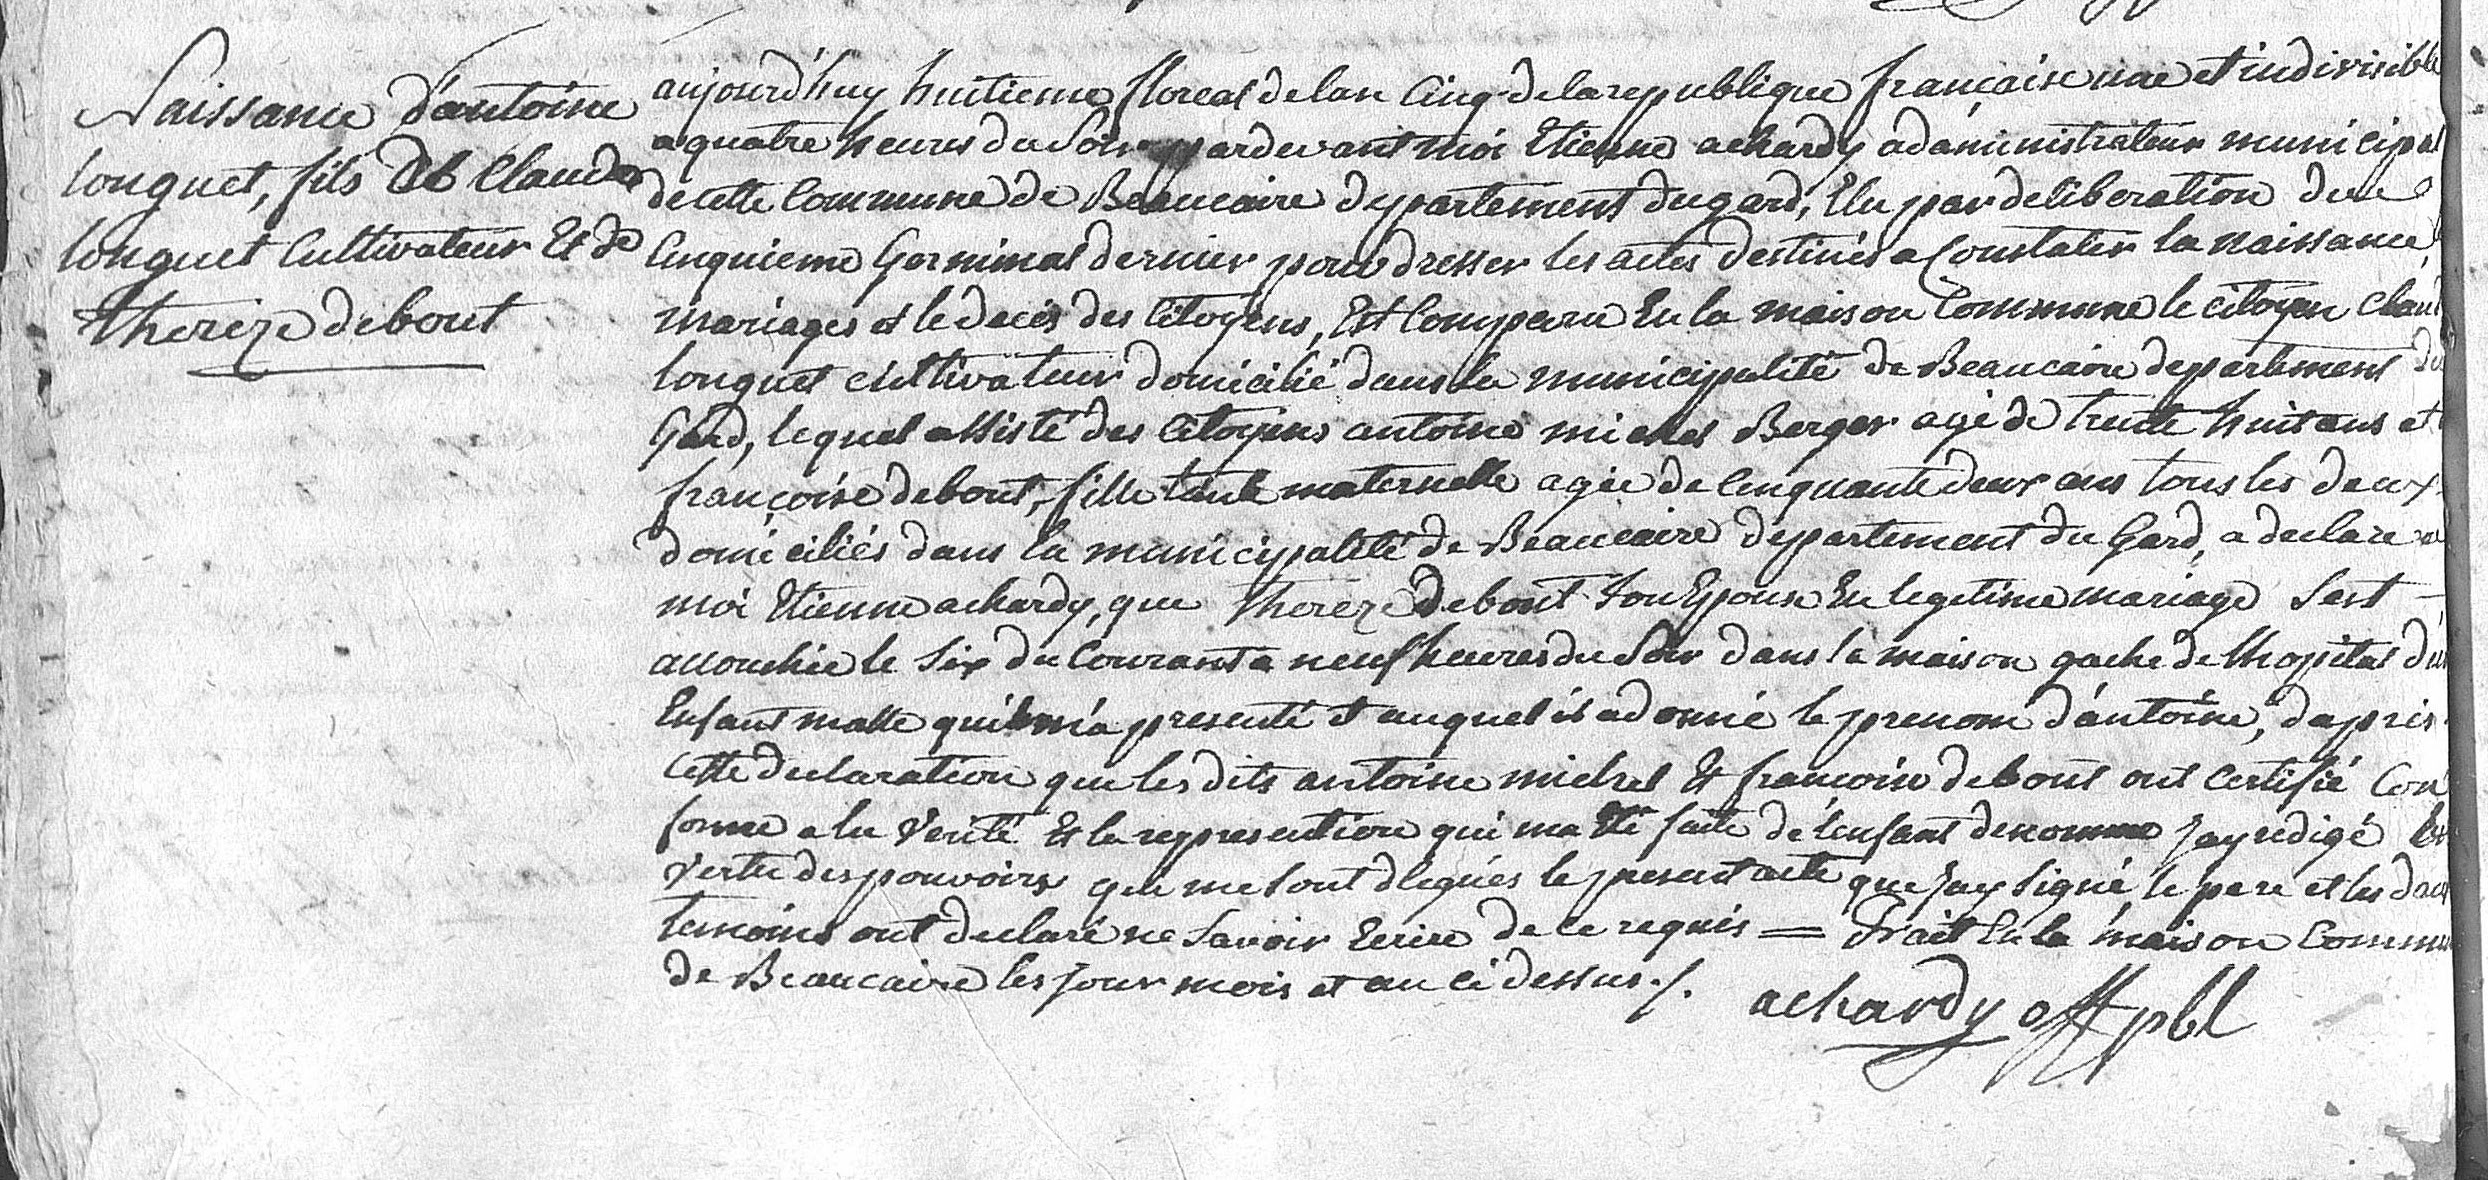 Naissance d'antoine
longuet, fils de Claude
longuet Cultivateur Et de
therèze debout
aujourd'huy huitieme floreal de lan Cinq de la republique française une et indivisible
a quatre heures du Soir pardevant moi Etienne achardy administrateur municipal
de cette Commune de Beaucaire departement du gard, Elu par deliberation du
Cinquieme Germinal dernier pour dresser les actes destinés a Constater la naissance,
mariages et le decès des Citoyens, Est Comparu En la maison Commune le citoyen Claude
longuet cultivateur domicilié dans la municipalité de Beaucaire departement du
Gard, lequel assisté des Citoyens antoine michel Berger agé de trente huit ans et
françoise debout, fille tante maternelle agée de Cinquante deux ans tous les deux
domiciliés dans la municipalité de Beaucaire departement du Gard, a declaré a
moi Etienne achardy, que therèze debout son Epouse En legetime mariage Sest
accouchée le Six du Courant a neuf heures du Soir dans la maison gache de lhopital d'un
Enfant malle quil m'a presenté et auquel il a donné le prenom d'antoine, daprès
Cette declaration que les dits antoine michel Et francoise debout ont certifié Con
forme a la Verité Et la representation qui ma été faite de l'enfant denommé jay redigé En
Vertu des pouvoirs que me sont delegués le present acte que jay signé, le pere et les deux
temoins ont declaré ne Savoir Ecrire de ce requis = Fait En la maison Commune
de Beaucaire les jour mois et an ci dessus ./.
achardy off pbl